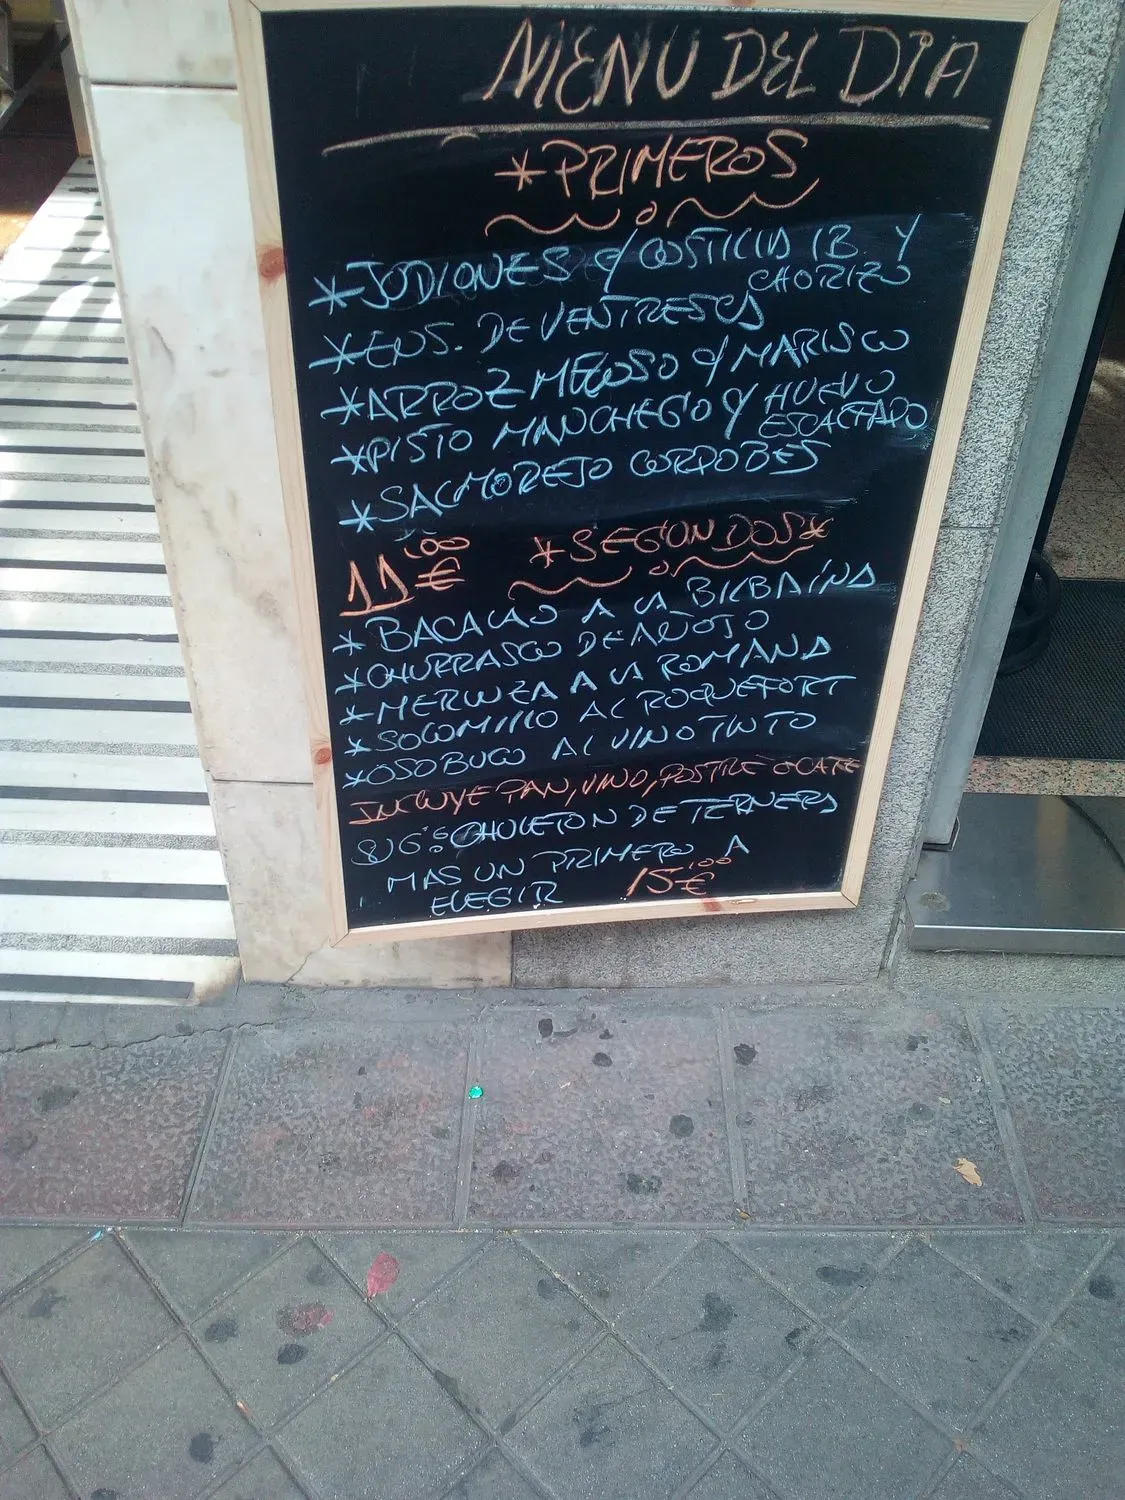 MENU DEL DIA
*PRIMEROS
*JUDIONES C/ COSTILLA IB. Y
CHORIZO
*ENS. DE VENTRESCA
*ARROZ MELOSO C/ MARISCO
*PISTO MANCHEGO C/ HUEVO
ESCALFADO
*SALMOREJO CORDOBES
11,00€
*SEGUNDOS*
*BACALAO A LA BILBAÍNA
*CHURRASCO DE AÑOJO
*MERLUZA A LA ROMANA
*SOLOMILLO AL ROQUEFORT
*OSOBUCO AL VINO TINTO
INCLUYE PAN, VINO, POSTRE O CAFE
CHULETON DE TERNERA
MAS UN PRIMERO A
ELEGIR 15,00€